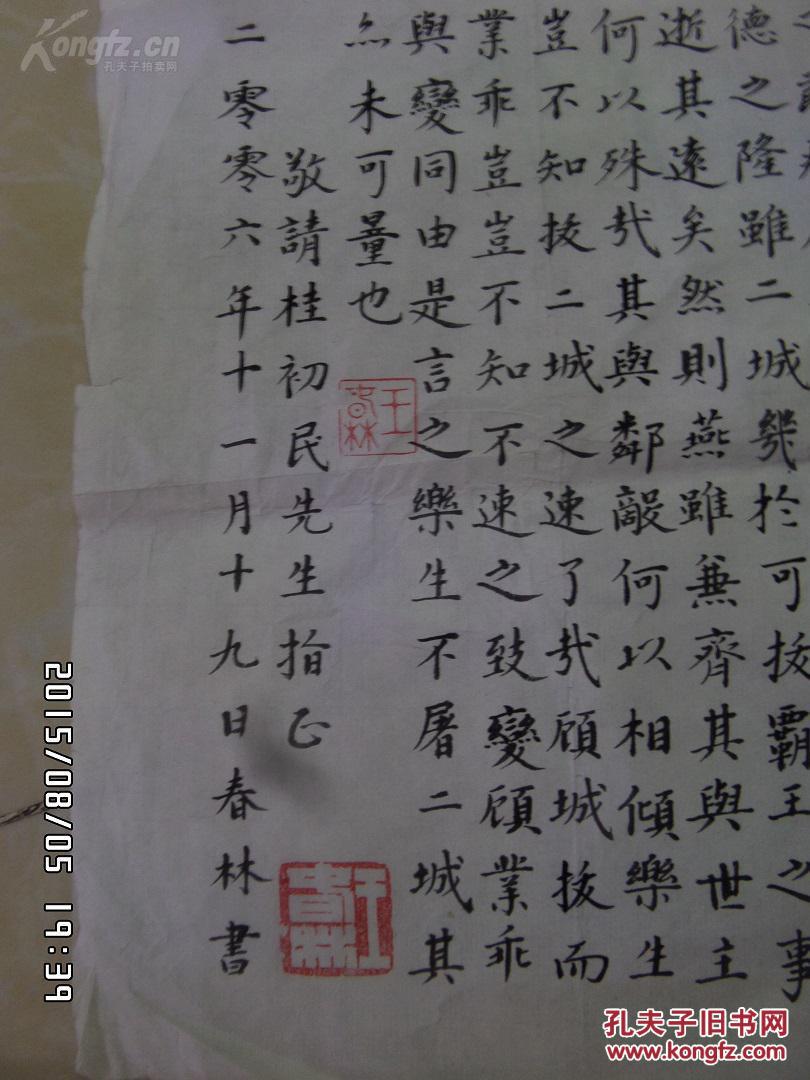 德之隆雖二城幾於可拔霸王之事
逝其遠矣然則燕雖兼齊其與世主
何以殊哉其與鄰敵何以相傾樂生
豈不知拔二城之速了哉顧城拔而
業乖豈豈不知不速之致變顧業乖
與變同由是言之樂生不屠二城其
亦未可量也
王春林
敬請桂初民先生指正
二零零六年十一月十九日春林書
王春林
2015/08/05 19:39
Kongfz.cn
孔夫子拍卖网
孔夫子旧书网
www.kongfz.com